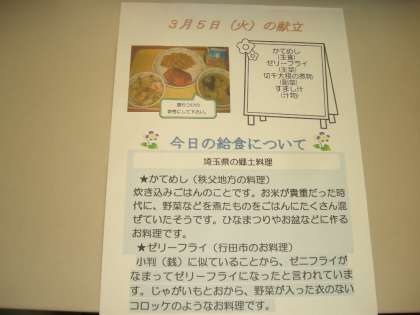 3月5日（火）の献立
かてめし
(主食)
ゼリーフライ
(主菜)
切干大根の煮物
(副菜)
すまし汁
(汁物)
盛りつけの
参考にして下さい。
今日の給食について
埼玉県の郷土料理
★かてめし（秩父地方の料理）
炊き込みごはんのことです。お米が貴重だった時
代に、野菜などを煮たものをごはんにたくさん混
ぜていたそうです。ひなまつりやお盆などに作る
お料理です。
★ゼリーフライ（行田市のお料理）
小判（銭）に似ていることから、ゼニフライが
なまってゼリーフライになったと言われていま
す。じゃがいもとおから、野菜が入った衣のない
コロッケのようなお料理です。